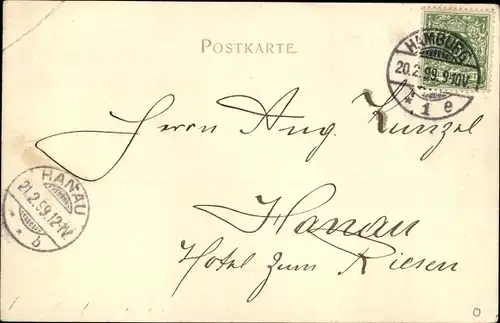 POSTKARTE.
HAMBURG
20.2.99.9-10V.
* 1 e
Herrn Aug. Künzel
HANAU
21.2.99.12-1V.
* * b
Hanau
Hotel zum Riesen